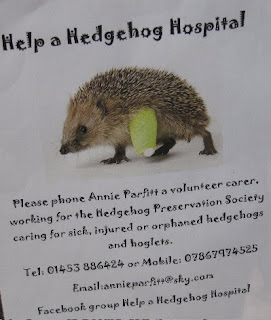 Help a Hedgehog Hospital
Please phone Annie Parfitt a volunteer carer,
working for the Hedgehog Preservation Society
caring for sick, injured or orphaned hedgehogs
and hoglets.
Tel: 01453 886424 or Mobile: 07867974525
Email:annieparfitt@sky.com
Facebook group Help a Hedgehog Hospital